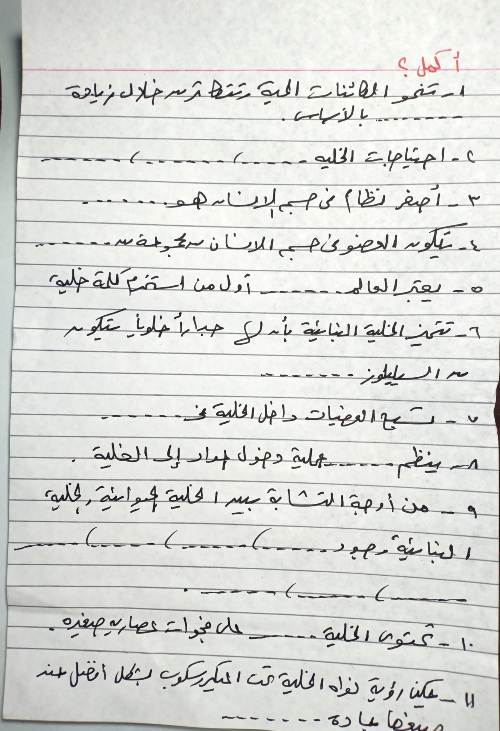 أكمل ؟
١- تنمو الكائنات الحية وتتطور من خلال زيادة
........ بالأساس .
٢- احتياجات الخلية ........ ، ........ ، ........
٣- أصغر نظام في جسم الإنسان هو ........
٤- يتكون العضو في جسم الانسان من مجموعة من ........
٥- يعتبر العالم ........ أول من استخدم كلمة خلية
٦- تتميز الخلية النباتية بأن لها جداراً خلوياً يتكون
من السليلوز ........
٧- تسبح العضيات داخل الخلية في ........
٨- ينظم ........ عملية دخول المواد إلى الخلية .
٩- من أوجة التشابة بين الخلية الحيوانية والخلية
النباتية وجود ........ ، ........ ، ........
........ ، ........ ، ........ .
١٠- تحتوى الخلية ........ على فجوات عصارية صغيرة .
١١- يمكن رؤية نواه الخلية تحت الميكروسكوب بشكل أفضل عند
صبغها بمادة ........